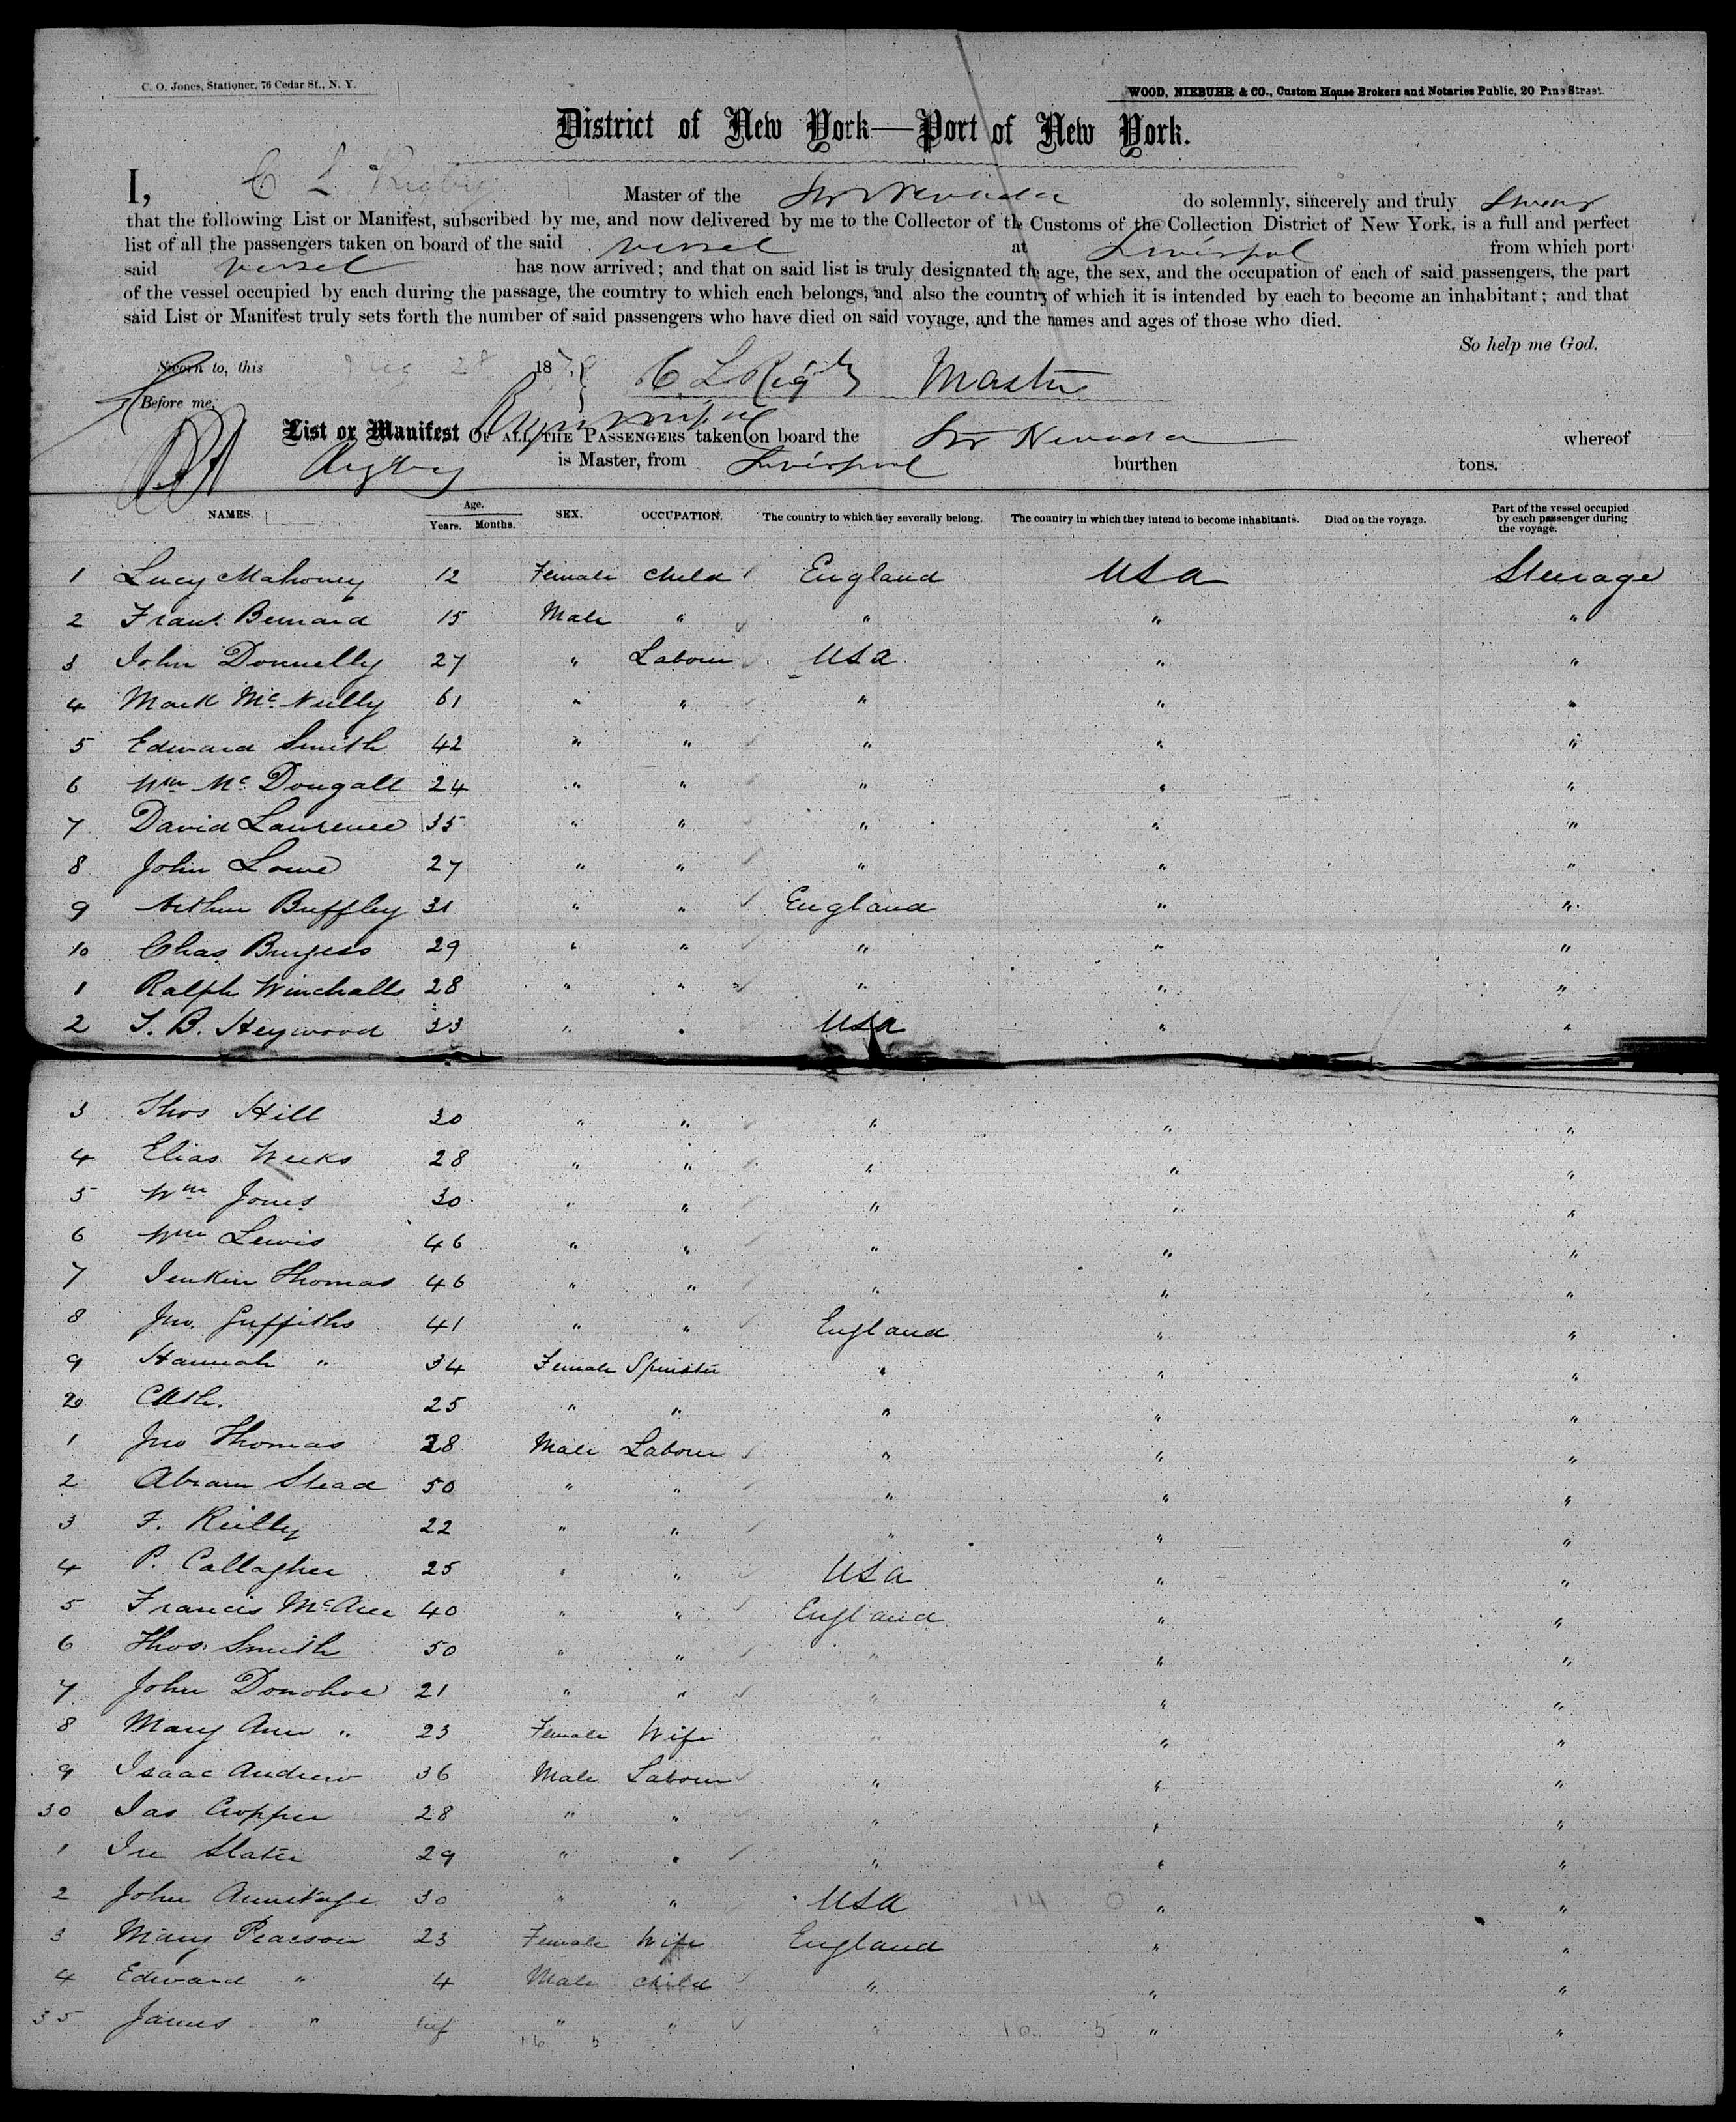 C. O. Jones, Stationer, 76 Cedar St., N. Y.
WOOD, NIEBUHR & CO., Custom House Brokers and Notaries Public, 20 Pine Street.
District of New York—Port of New York.
I, C L Rigby Master of the Str Nevada do solemnly, sincerely and truly swear
that the following List or Manifest, subscribed by me, and now delivered by me to the Collector of the Customs of the Collection District of New York, is a full and perfect
list of all the passengers taken on board of the said vessel at Liverpool from which port
said vessel has now arrived; and that on said list is truly designated the age, the sex, and the occupation of each of said passengers, the part
of the vessel occupied by each during the passage, the country to which each belongs, and also the country of which it is intended by each to become an inhabitant; and that
said List or Manifest truly sets forth the number of said passengers who have died on said voyage, and the names and ages of those who died.
So help me God.
Sworn to, this Aug 28 1878 C L Rigby Master
Before me,
List or Manifest OF ALL THE PASSENGERS taken on board the Str Nevada whereof
Rigby is Master, from Liverpool burthen tons.
NAMES. Age. Years. Months. SEX. OCCUPATION. The country to which they severally belong. The country in which they intend to become inhabitants. Died on the voyage. Part of the vessel occupied by each passenger during the voyage.
1 Lucy Mahoney 12 Female Child England USA Steerage
2 Frant. Bernard 15 Male " " " "
3 John Donnelly 27 " Labour USA " "
4 Mark McNully 61 " " " " "
5 Edward Smith 42 " " " " "
6 Wm McDougall 24 " " " " "
7 David Laurence 35 " " " " "
8 John Lowe 27 " " " " "
9 Arthur Buffley 31 " " England " "
10 Chas Burgess 29 " " " " "
1 Ralph Winchalls 28 " " " " "
2 T. B. Heywood 33 " " USA " "
3 Thos Hill 30 " " " " "
4 Elias Weeks 28 " " " " "
5 Wm Jones 30 " " " " "
6 Wm Lewis 46 " " " " "
7 Jenkin Thomas 46 " " " " "
8 Jno. Griffiths 41 " " England " "
9 Hannah " 34 Female Spinster " " "
20 Cath. 25 " " " " "
1 Jno Thomas 28 Male Labour " " "
2 Abram Stead 50 " " " " "
3 F. Reilly 22 " " " " "
4 P. Callagher 25 " " USA " "
5 Francis McAree 40 " " England " "
6 Thos. Smith 50 " " " " "
7 John Donohoe 21 " " " " "
8 Mary Ann " 23 Female Wife " " "
9 Isaac Andrew 36 Male Labour " " "
30 Jas Cropper 28 " " " " "
1 Ire Slater 29 " " " " "
2 John Armitage 30 " " USA 14 0 " "
3 Mary Pearson 23 Female Wife England " "
4 Edward " 4 Male Child " " "
35 James " inf " " " 10 5 " "
16 5